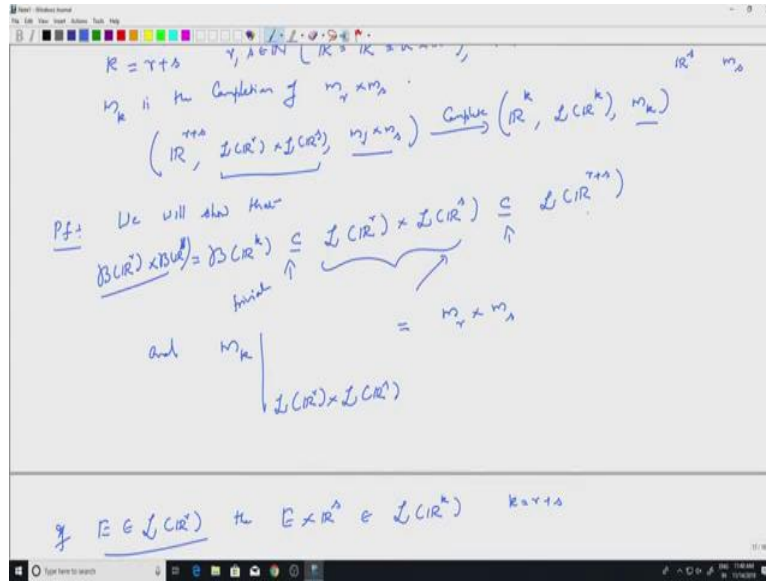 Note1 - Windows Journal
File Edit View Insert Actions Tools Help
k = r+s r, s ∈ ℕ
ℝ^s m_s
m_k is the Completion of m_r × m_s .
(ℝ^{r+s}, 𝓛(ℝ^r) × 𝓛(ℝ^s), m_r × m_s) Complete → (ℝ^k, 𝓛(ℝ^k), m_k)
Pf: We will show that
𝓑(ℝ^r) × 𝓑(ℝ^s) = 𝓑(ℝ^k) ⊆ 𝓛(ℝ^r) × 𝓛(ℝ^s) ⊆ 𝓛(ℝ^{r+s})
↑ ↑
trivial
and m_k | 𝓛(ℝ^r) × 𝓛(ℝ^s) = m_r × m_s
If E ∈ 𝓛(ℝ^r) the E × ℝ^s ∈ 𝓛(ℝ^k) k = r+s
Type here to search
11:40 AM
11/14/2019